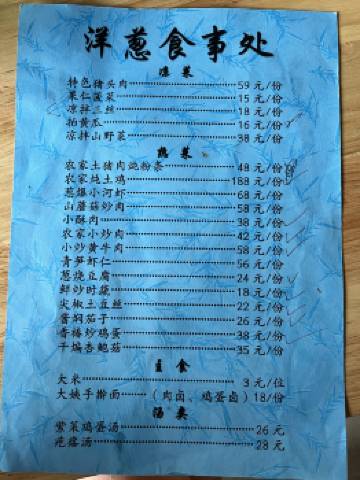 洋葱食事处
凉菜
特色猪头肉 59元/份
果仁菠菜 15元/份
凉拌三丝 18元/份
拍黄瓜 16元/份
凉拌山野菜 38元/份
热菜
农家土猪肉炖粉条 48元/份
农家炖土鸡 188元/份
葱爆小河虾 68元/份
山蘑菇炒肉 58元/份
小酥肉 38元/份
农家小炒肉 42元/份
小炒黄牛肉 58元/份
青笋虾仁 56元/份
葱烧豆腐 24元/份
鲜炒时蔬 18元/份
尖椒土豆丝 22元/份
酱焖茄子 26元/份
香椿炒鸡蛋 38元/份
干煸杏鲍菇 35元/份
主食
大米 3元/位
大姨手擀面（肉卤、鸡蛋卤）18/份
汤类
紫菜鸡蛋汤 26元
疙瘩汤 28元